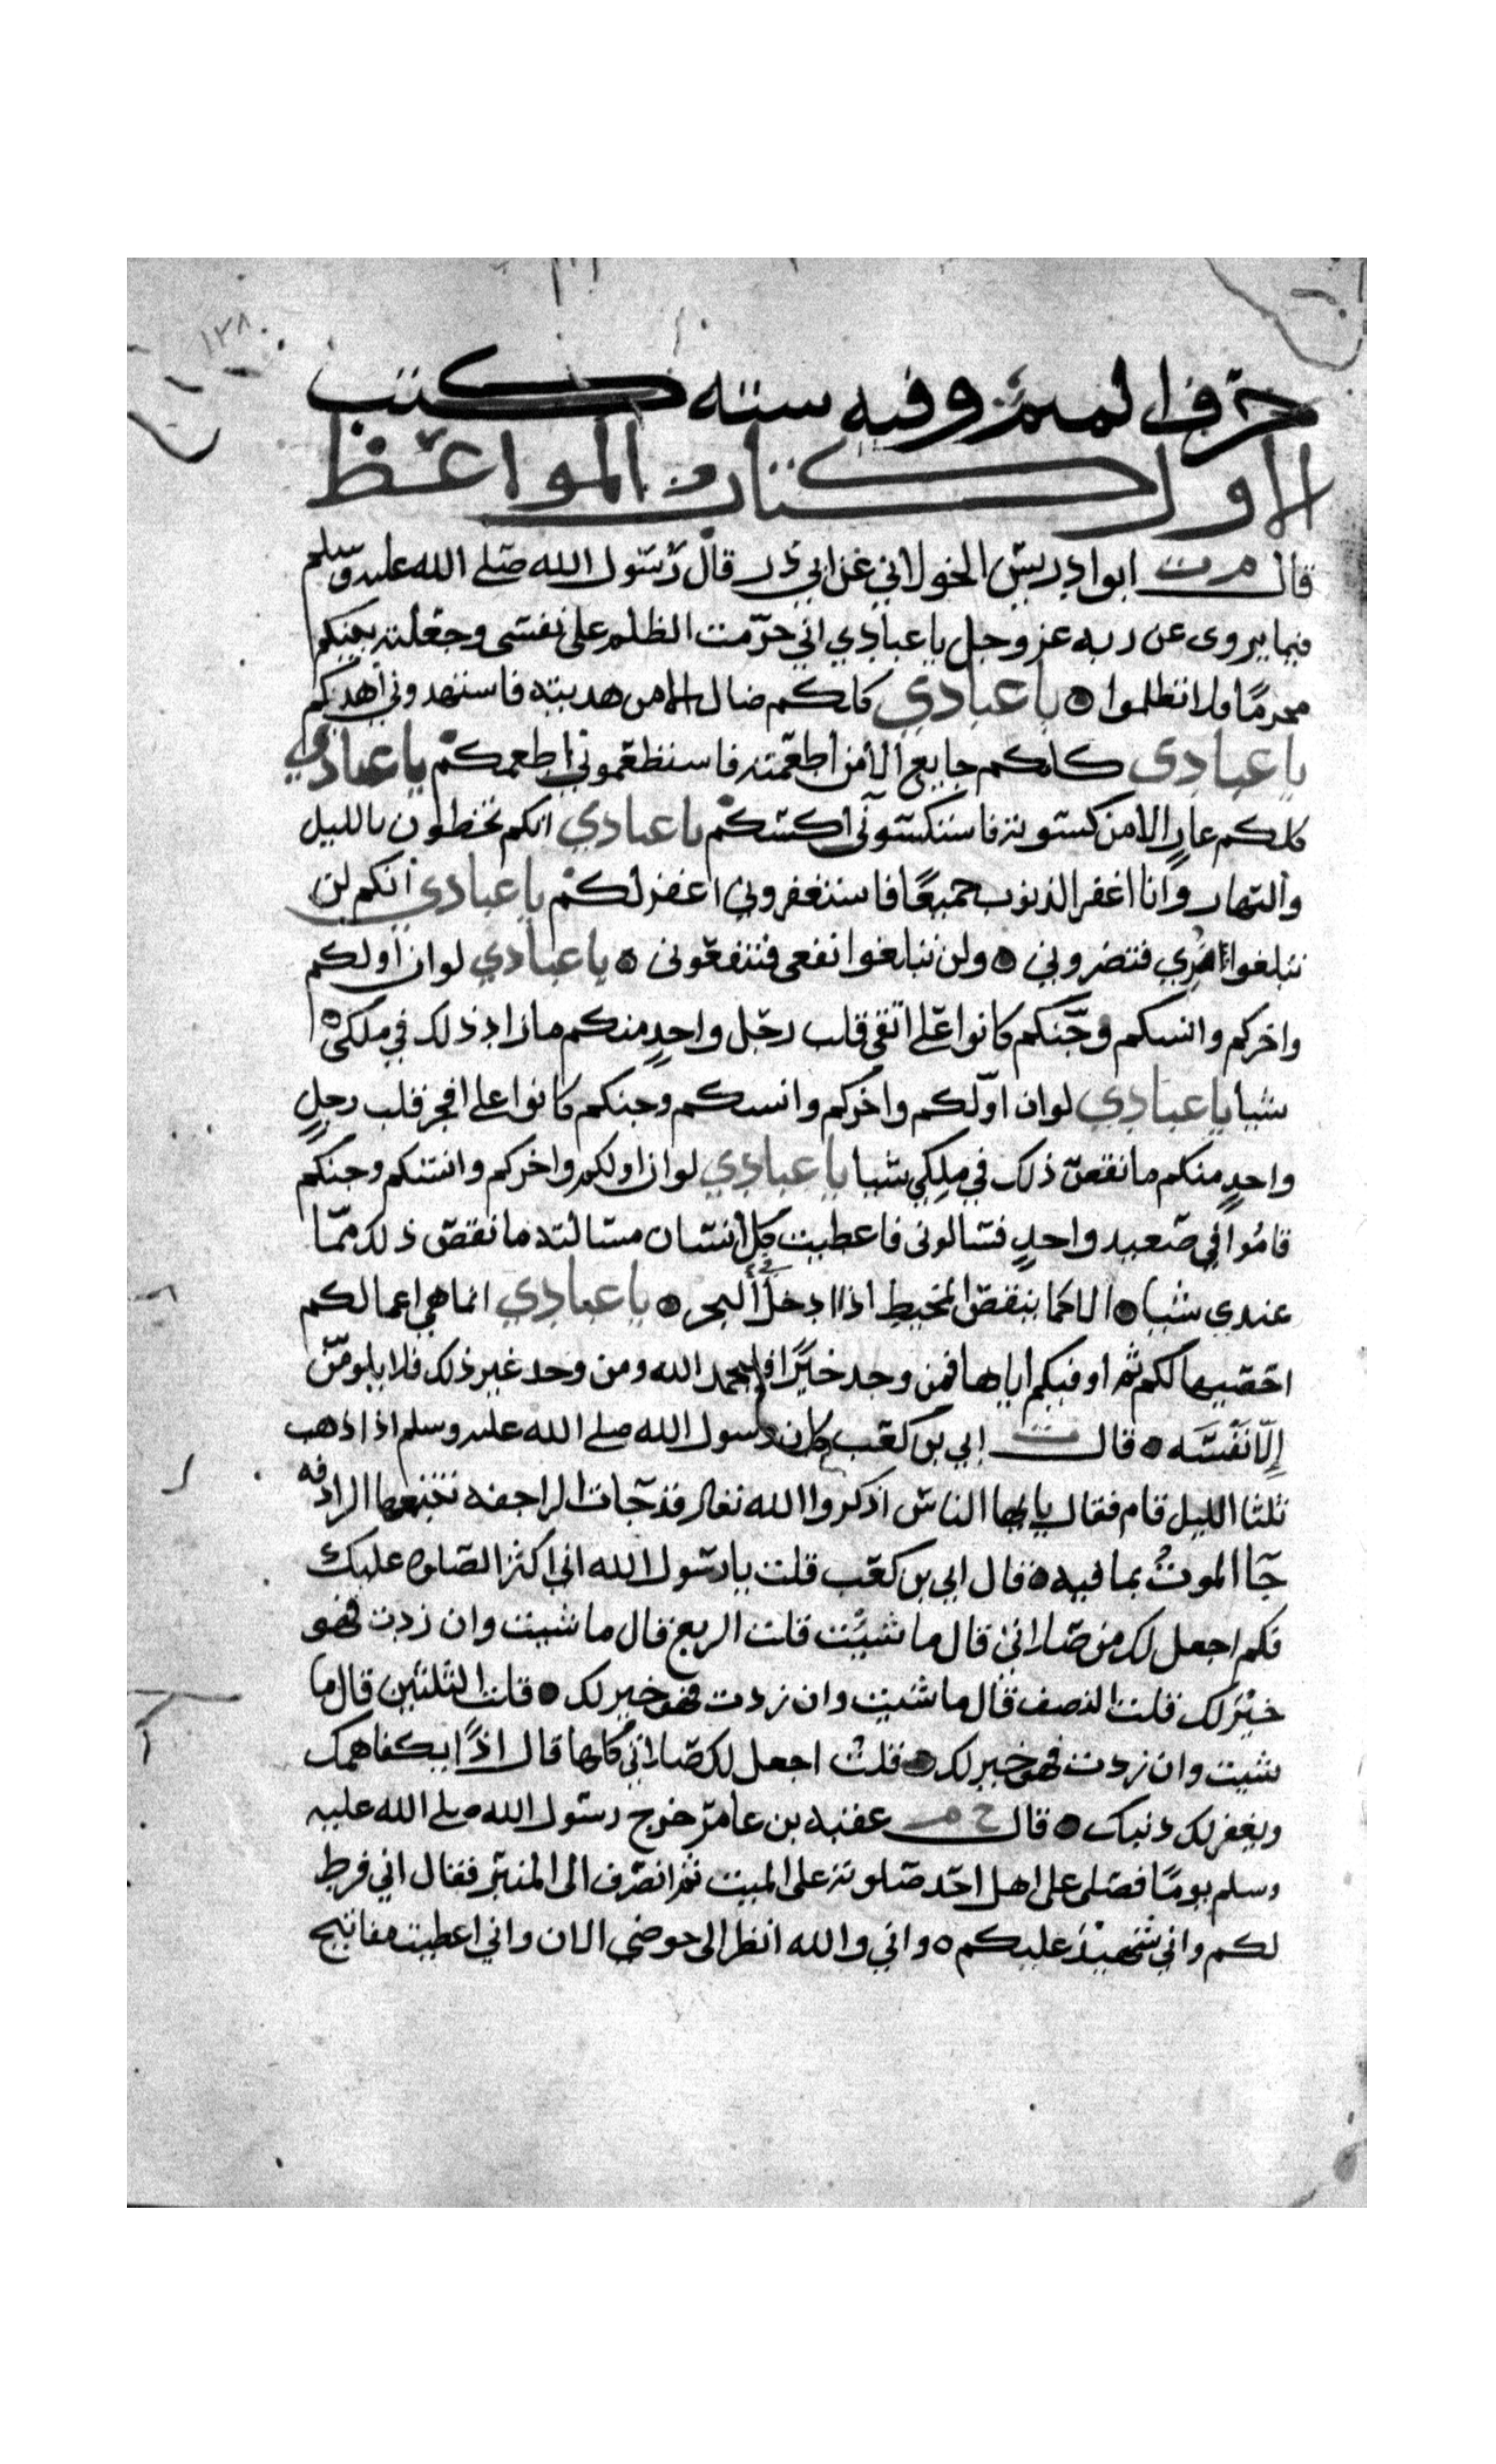 ١٣٨
حرف الميم وفيه ستة كتب
الاول كتاب المواعظ
قال م ت ابو ادريس الخولاني عن ابي ذر قال رسول الله صلى الله عليه وسلم
فيما يروى عن ربه عز وجل يا عبادي اني حرمت الظلم على نفسى وجعلته بينكم
محرمًا فلا تظلموا ه يا عبادي كلكم ضال الا من هديته فاستهدوني اهدكم
يا عبادي كلكم جايع الا من اطعمته فاستطعموني اطعمكم يا عبادي
كلكم عارٍ الا من كسوته فاستكسوني اكسكم يا عبادي انكم تخطون بالليل
والنهار وانا اغفر الذنوب جميعًا فاستغفروني اغفر لكم يا عبادي انكم لن
تبلغوا ضري فتضروني ه ولن تبلغوا نفعى فتنفعونى ه يا عبادي لو ان اولكم
واخركم وانسكم وجنكم كانوا على اتقى قلب رجل واحدٍ منكم ما زاد ذلك في ملكى
شيا يا عبادي لو ان اولكم واخركم وانسكم وجنكم كانوا على افجر قلب رجلٍ
واحدٍ منكم ما نقص ذلك في ملكي شيا يا عبادي لو ان اولكم واخركم وانسكم وجنكم
قاموا في صعيد واحدٍ فسالونى فاعطيت كل انسان مسالته ما نقص ذلك مما
عندي شيا ه الا كما ينقص المخيط اذا ادخل البحر ه يا عبادي انما هي اعمالكم
احصيها لكم ثم اوفيكم اياها فمن وجد خيرًا فليحمد الله ومن وجد غير ذلك فلا يلومن
إلا نفسه ه قال ت ابي بن كعب كان رسول الله صلى الله عليه وسلم اذا ذهب
ثلثا الليل قام فقال يايها الناس اذكروا الله تعالى قد جات الراجفه تتبعها الرادفه
جا الموت بما فيه ه قال ابي بن كعب قلت يا رسول الله اني اكثر الصلوه عليك
فكم اجعل لك من صلاتي قال ما شيت قلت الربع قال ما شيت وان زدت فهو
خير لك قلت النصف قال ما شيت وان زدت فهو خير لك ه قلت الثلثين قال ما
شيت وان زدت فهو خير لك ه قلت اجعل لك صلاتي كلها قال اذًا يكفا همك
ويغفر لك ذنبك ه قال خ م عقبه بن عامر خرج رسول الله صلى الله عليه
وسلم يومًا فصلى على اهل احد صلوته على الميت ثم انصرف الى المنبر فقال اني فرط
لكم واني شهيد عليكم ه واني والله انظر الى حوضي الان واني اعطيت مفاتيح